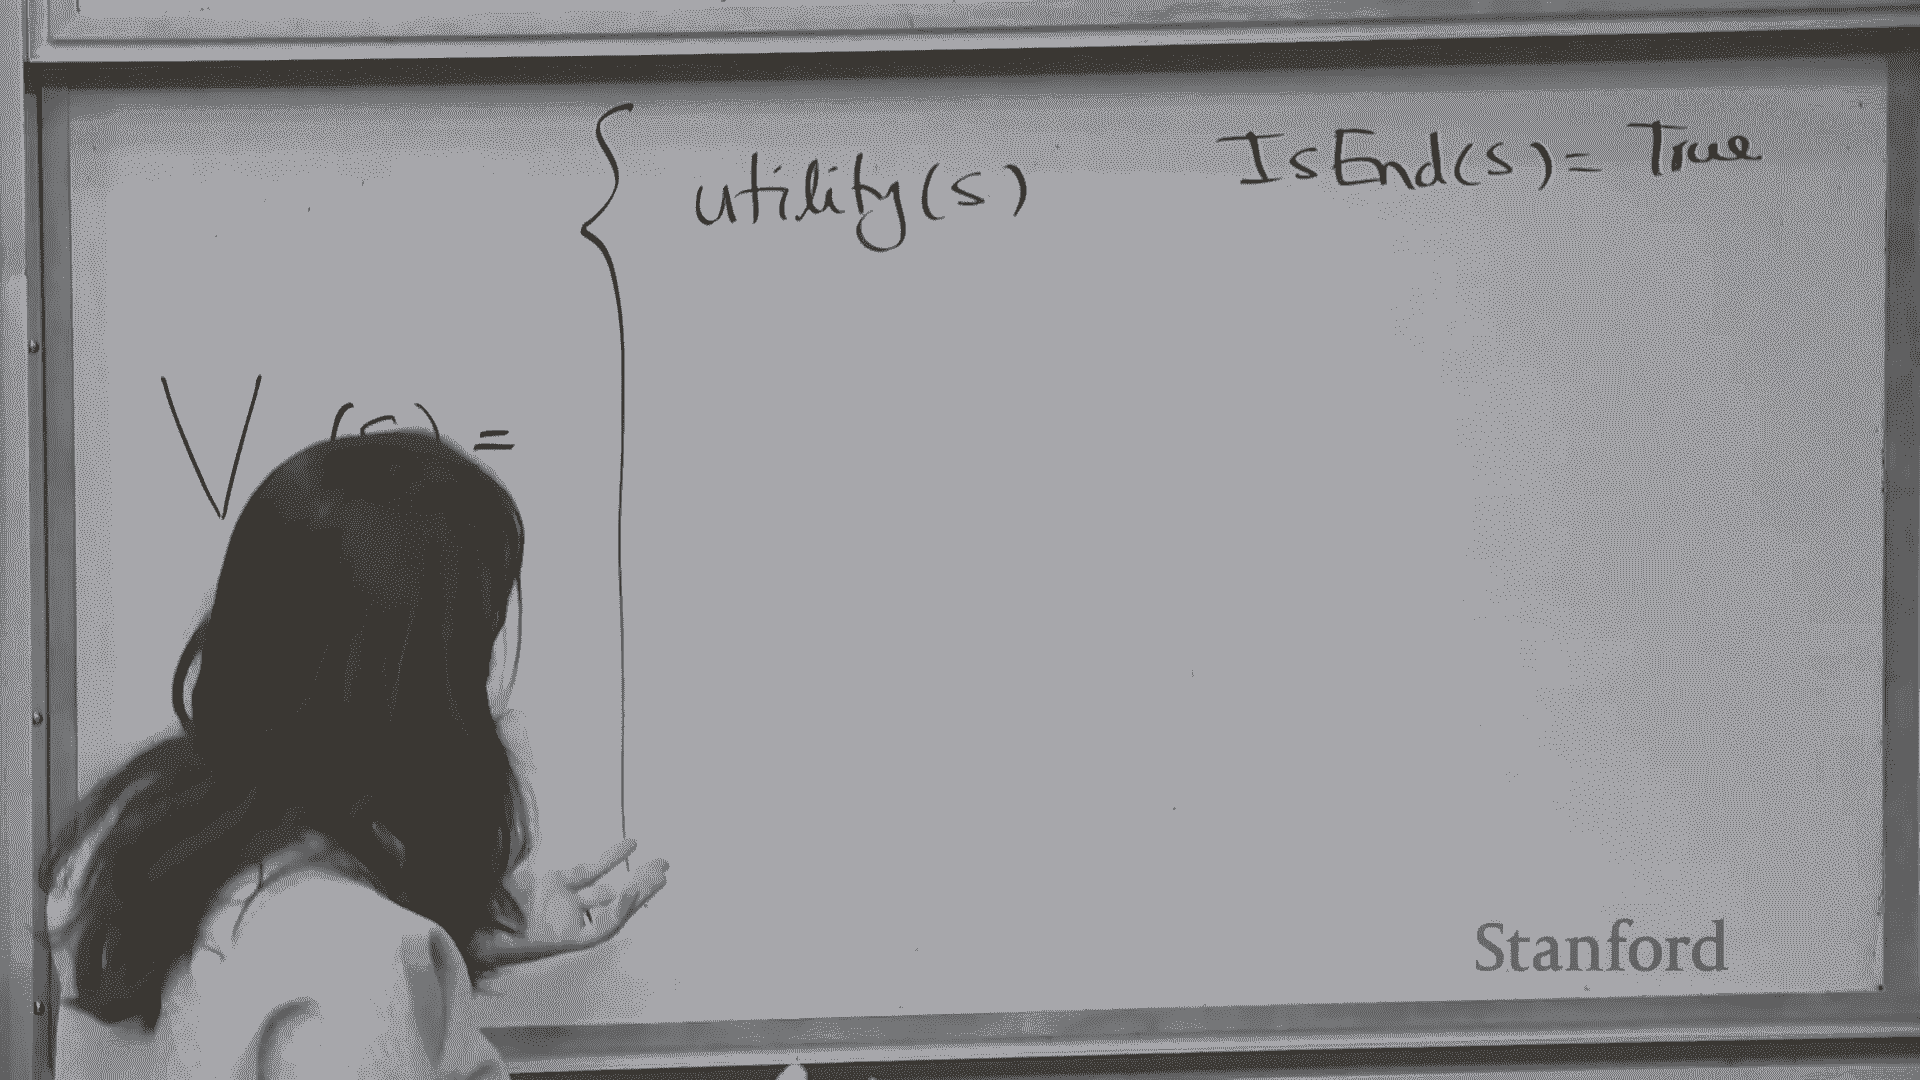 utility(s) IsEnd(s) = True
V (s) =
Stanford